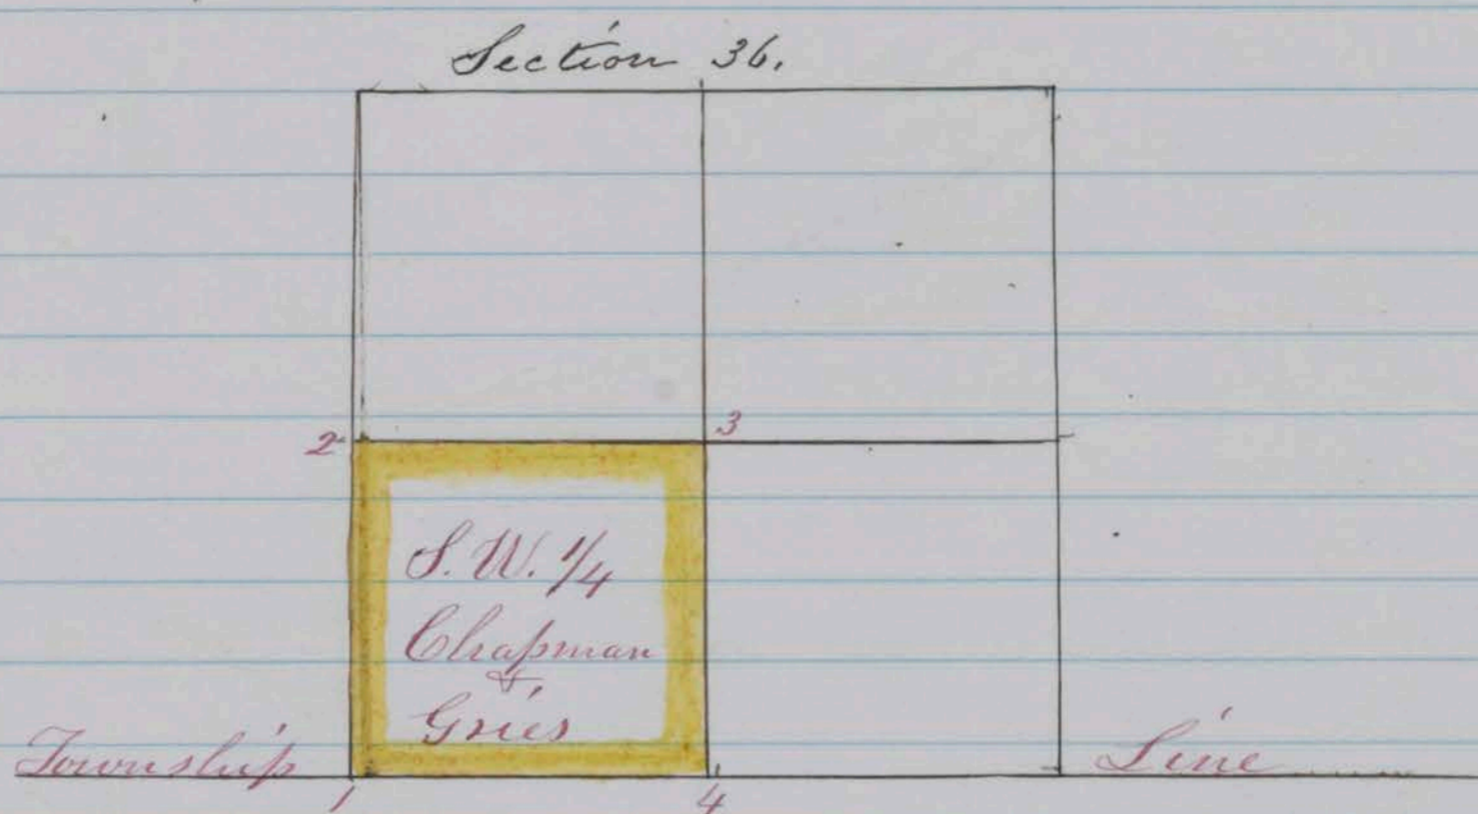 Section 36.
2 3
S. W. 1/4
Chapman
&
Gries
Township Line
1 4